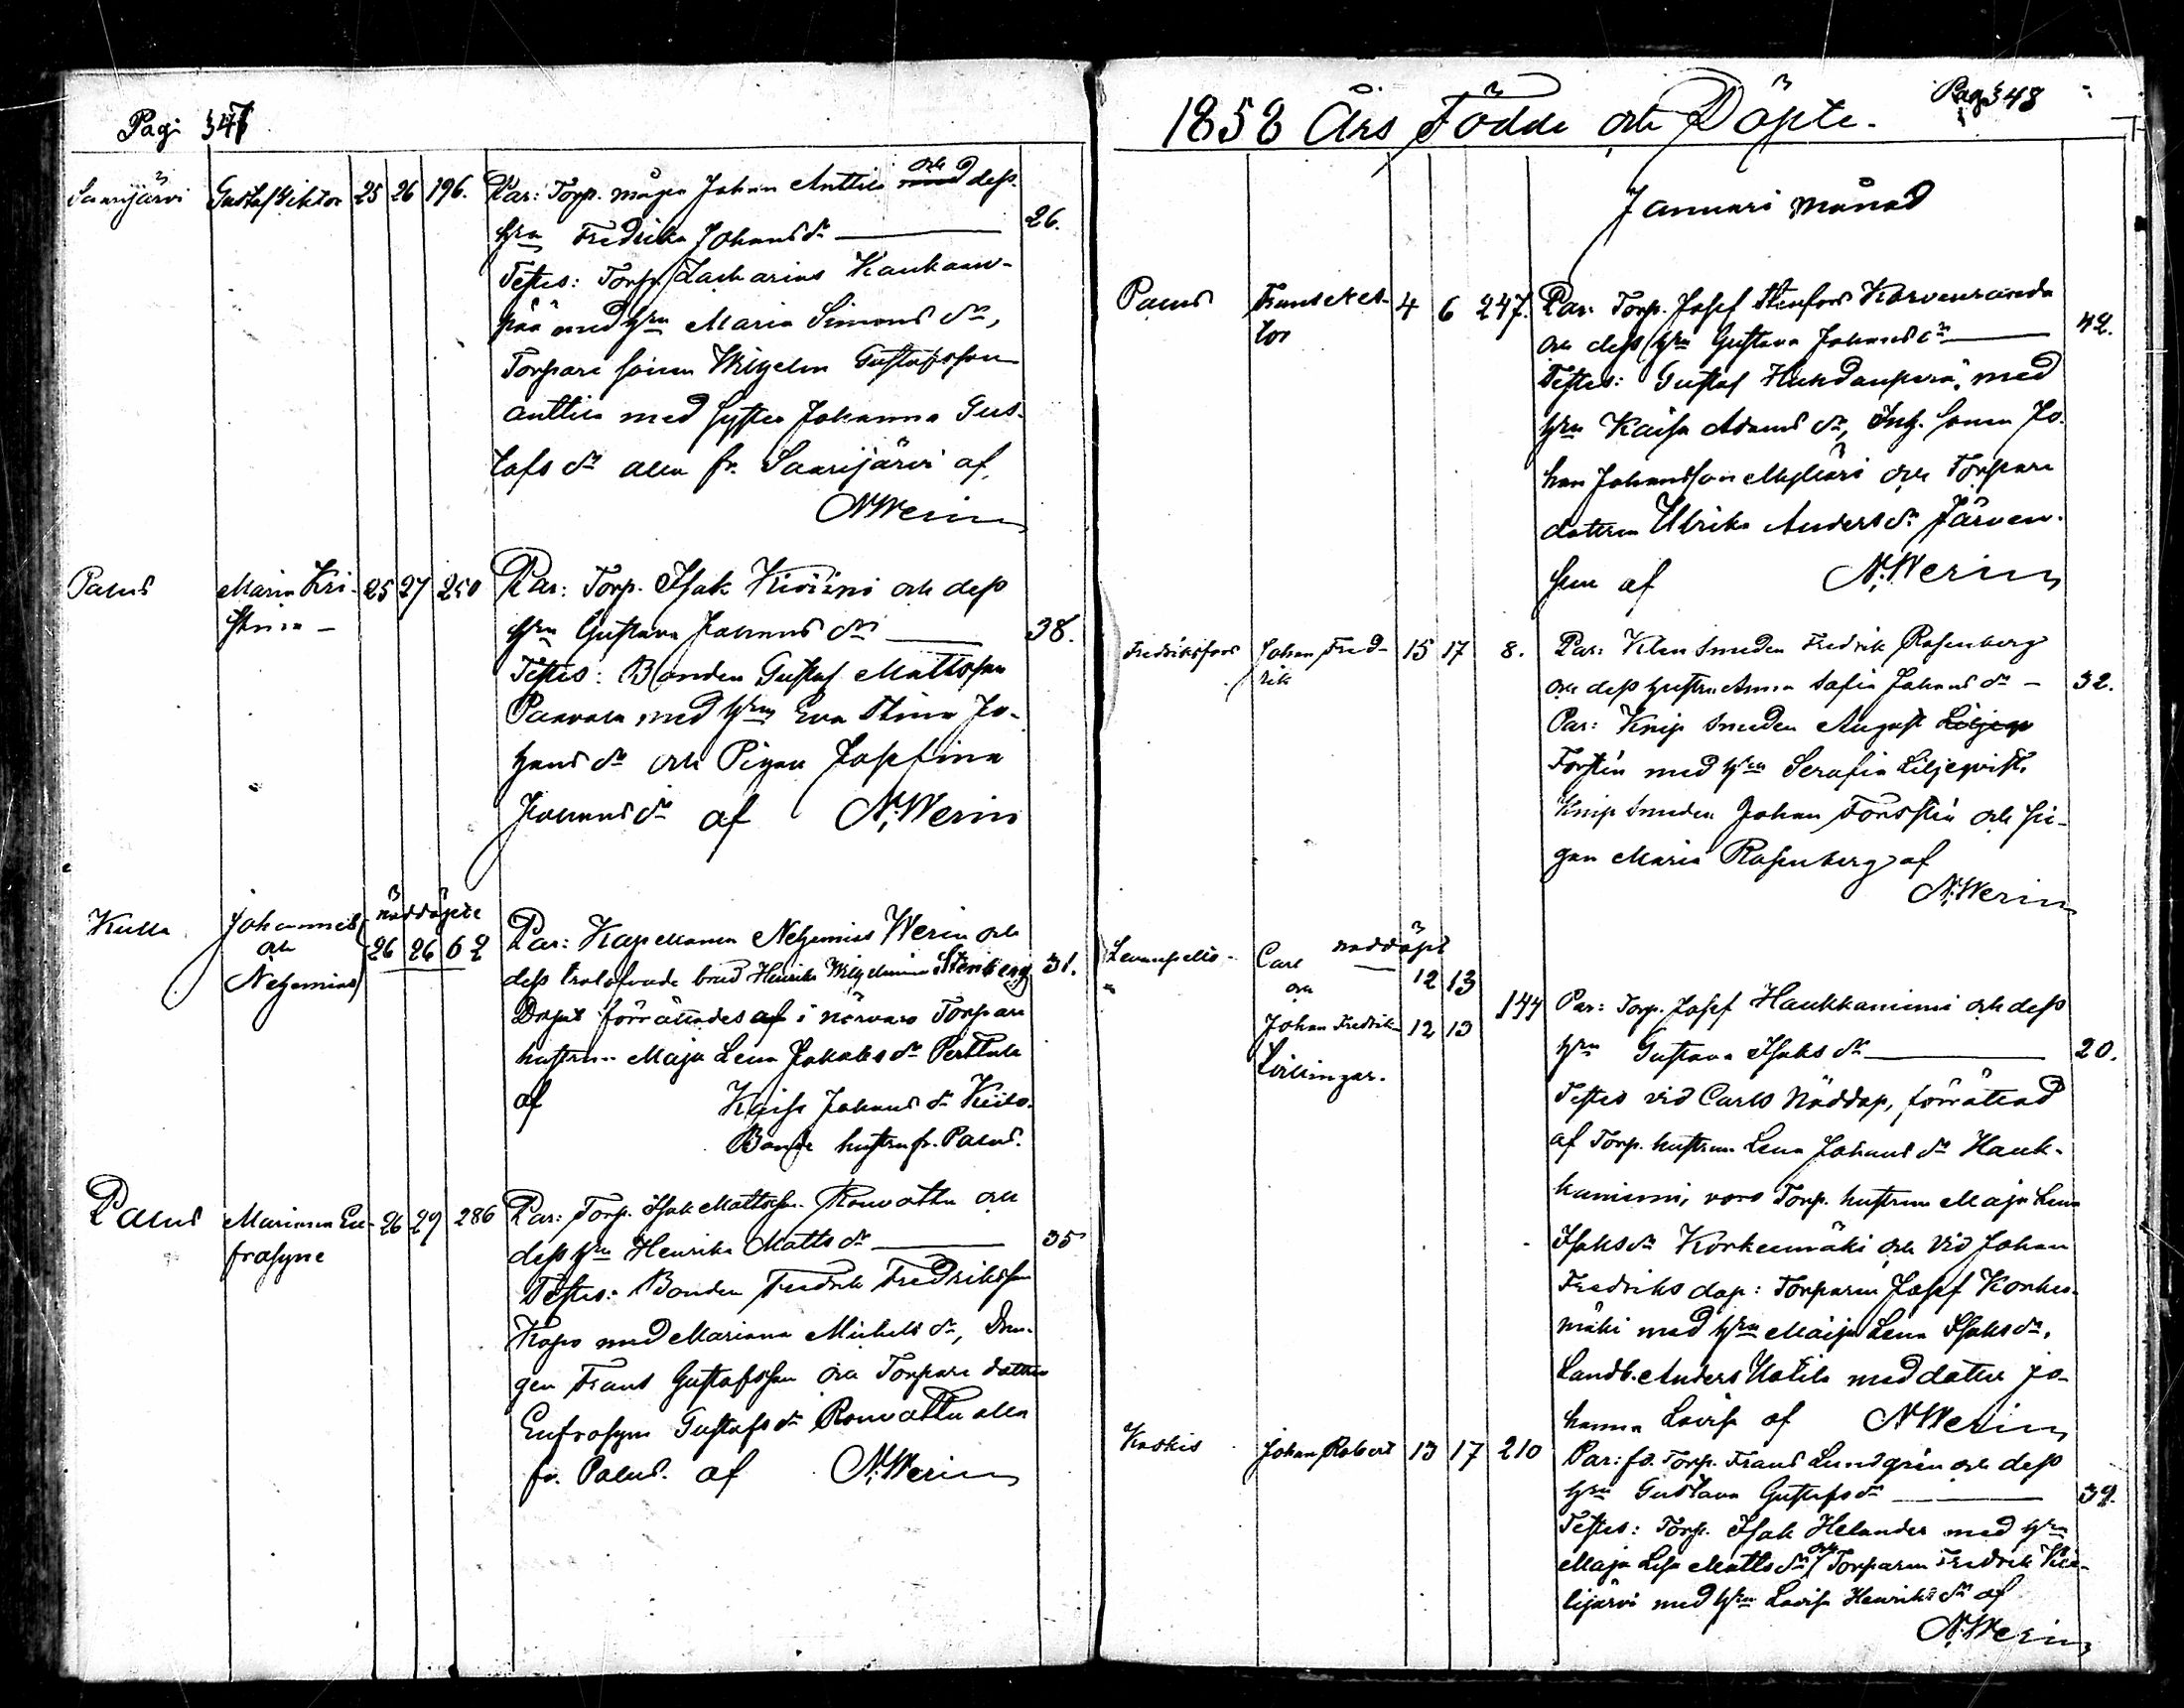 Pagi 347
Saarijärvi Gustaf Viktor 25 26 196. Par: Torp. mågen Johan Anttila och dess
hru Fredrika Johansdr 26.
Testes: Torp. Zacharias Kauhaan-
pää med hru Maria Simonsdr,
Torpare sonen Wilhelm Gustafsson
Anttila med syster Johanna Gus-
tafsdr alla fr. Saarijärvi af
N. Werin
Palus Maria Kri- 25 27 250 Par: Torp. Isak Kiviini och dess
stina hru Gustava Johansdr 38.
Testes: Bonden Gustaf Mattsson
Paavola med hru Eva Stina Jo-
hansdr och Pigan Josefina
Johansdr af N. Werin
nöddöpte
Kulla Johannes 26 26 62 Par: Kapellanen Nehemias Werin och
och dess trolofvade brud Henrika Wilhelmina Stenberg 31.
Nehemias Dopet förrättades i närvaro Torpare
hustrun Maja Lena Jakobsdr Perttula
af Kaisa Johansdr
Bonde hustru fr. Palus.
Palus Mariana Eu- 26 29 286 Par: Torp. Isak Mattsson Rouvattu och
frosyne dess hru Henrika Mattsdr 35
Testes: Bonden Fredrik Fredriksson
Kapo med Mariana Michelsdr, Dren-
gen Frans Gustafsson och Torpare dottren
Eufrosyne Gustafsdr Rouvattu alla
fr. Palus. af N. Werin
1858 Års Födde och Döpte. Pag 348
Januari månad
Palus Frans Vik- 4 6 247. Par: Torp. Josef Stenfors Korvenranda
tor och dess hru Gustava Johansdr 42.
Testes: Gustaf med
hru Kaisa Adamsdr, Inh. sonen Jo-
han Johansson Mylläri och Torpare
dottren Ulrika Andersdr Järven-
af N. Werin
Fredriksfors Johan Fred- 15 17 8. Par: Klensmeden Fredrik Rosenberg
rik och dess hustru Anna Sofia Johansdr 32.
Par: Knipsmeden August Liljeqv
Forstén med hru Serafia Liljeqvist,
Knipsmeden Johan Forstén och Pi-
gan Maria Rosenberg af
N. Werin
nöddöpt
Carl 12 13
och
Johan Fredrik 12 13 144 Par: Torp. Josef Haukkaniemi och dess
Tvillingar. hru Gustava Isaksdr 20.
Testes vid Carls Nöddop, förrättad
af Torp. hustrun Lena Johansdr Hauk-
kaniemi, voro Torp. hustrun Maja Lena
Isaksdr Korkeemäki och vid Johan
Fredriks dop: Torparen Josef Korkee-
mäki med hru Maija Lena Isaksdr,
Landb. Anders Uotila med dotter Jo-
hanna Lovisa af N. Werin
Koskis Johan Robert 13 17 210 Par: fd. Torp. Frans Lundgrén och dess
hru Gustava Gustafsdr 39.
Testes: Torp. Isak Helander med hru
Maja Lisa Mattsdr och Torparen Fredrik
lijärvi med hru Lovisa Henriksdr af
N. Werin